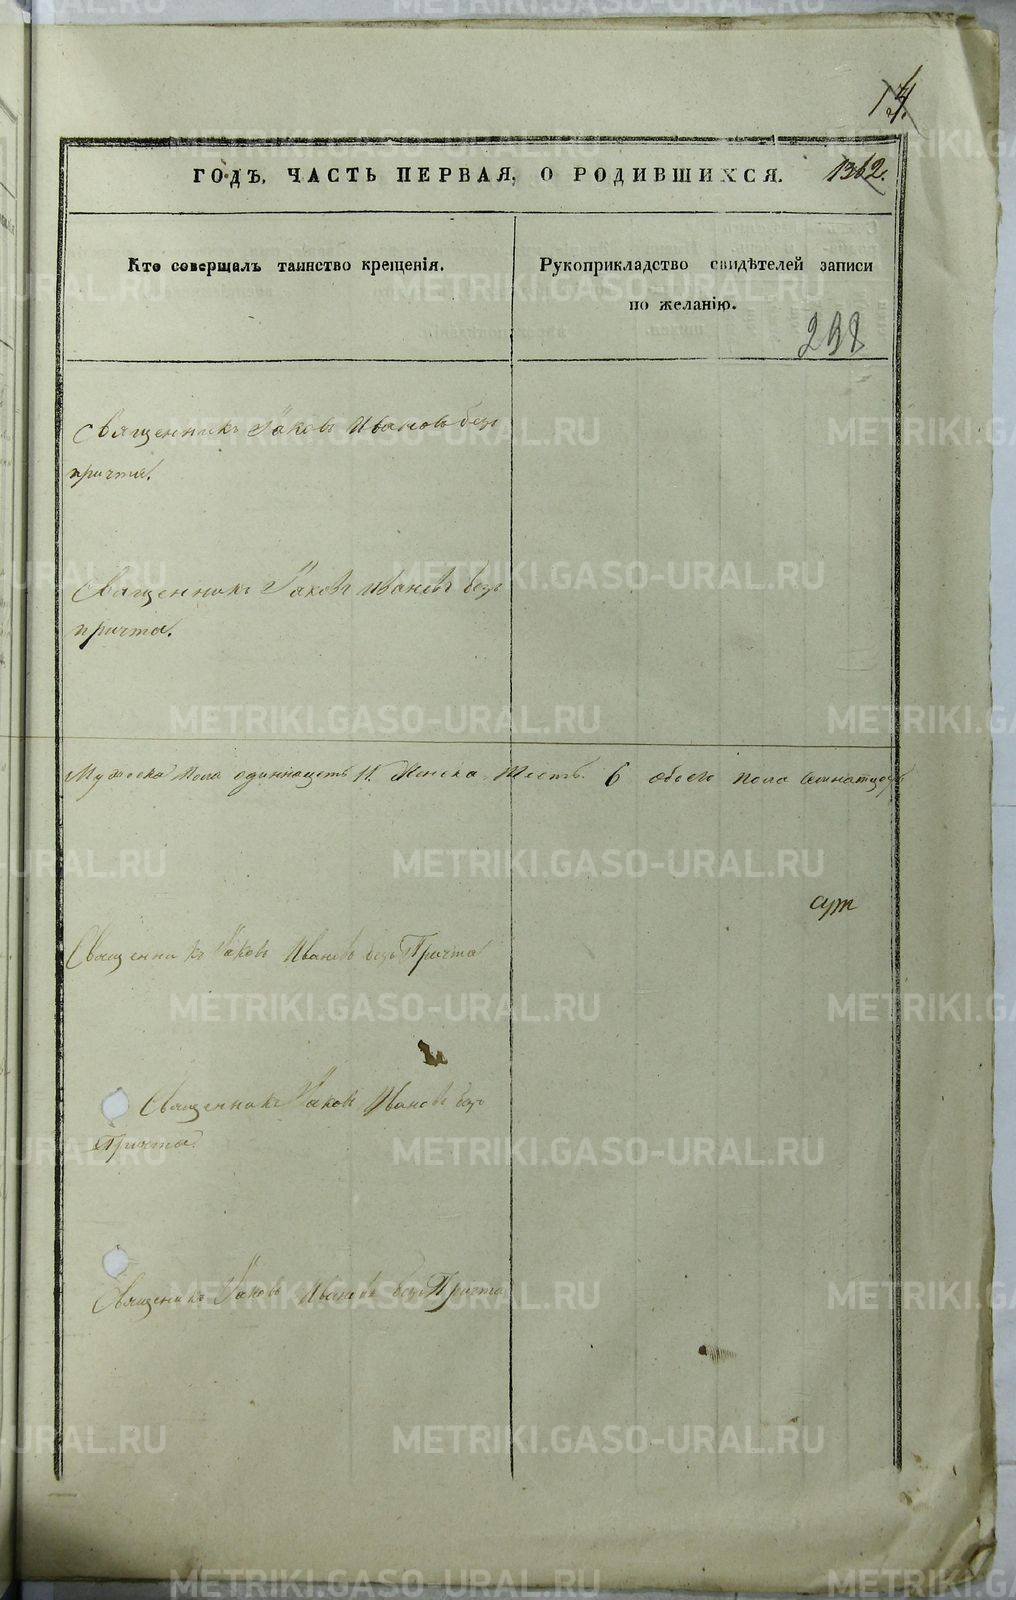 14.
ГОДЪ, ЧАСТЬ ПЕРВАЯ, О РОДИВШИХСЯ. 1362.
Кто совершалъ таинство крещенія.
Рукоприкладство свидѣтелей записи
по желанію.
298
Священникъ Іаковъ Ивановъ безъ
причта.
Священникъ Іаковъ Ивановъ безъ
причта.
Мужеска пола одиннацеть 11. Женска Шесть. 6 обоего пола семнатцеть
Священникъ Іаковъ Ивановъ безъ Причта
Священникъ Іаковъ Ивановъ безъ
Причта
Священикъ Іаковъ Ивановъ безъ Причта
METRIKI.GASO-URAL.RU